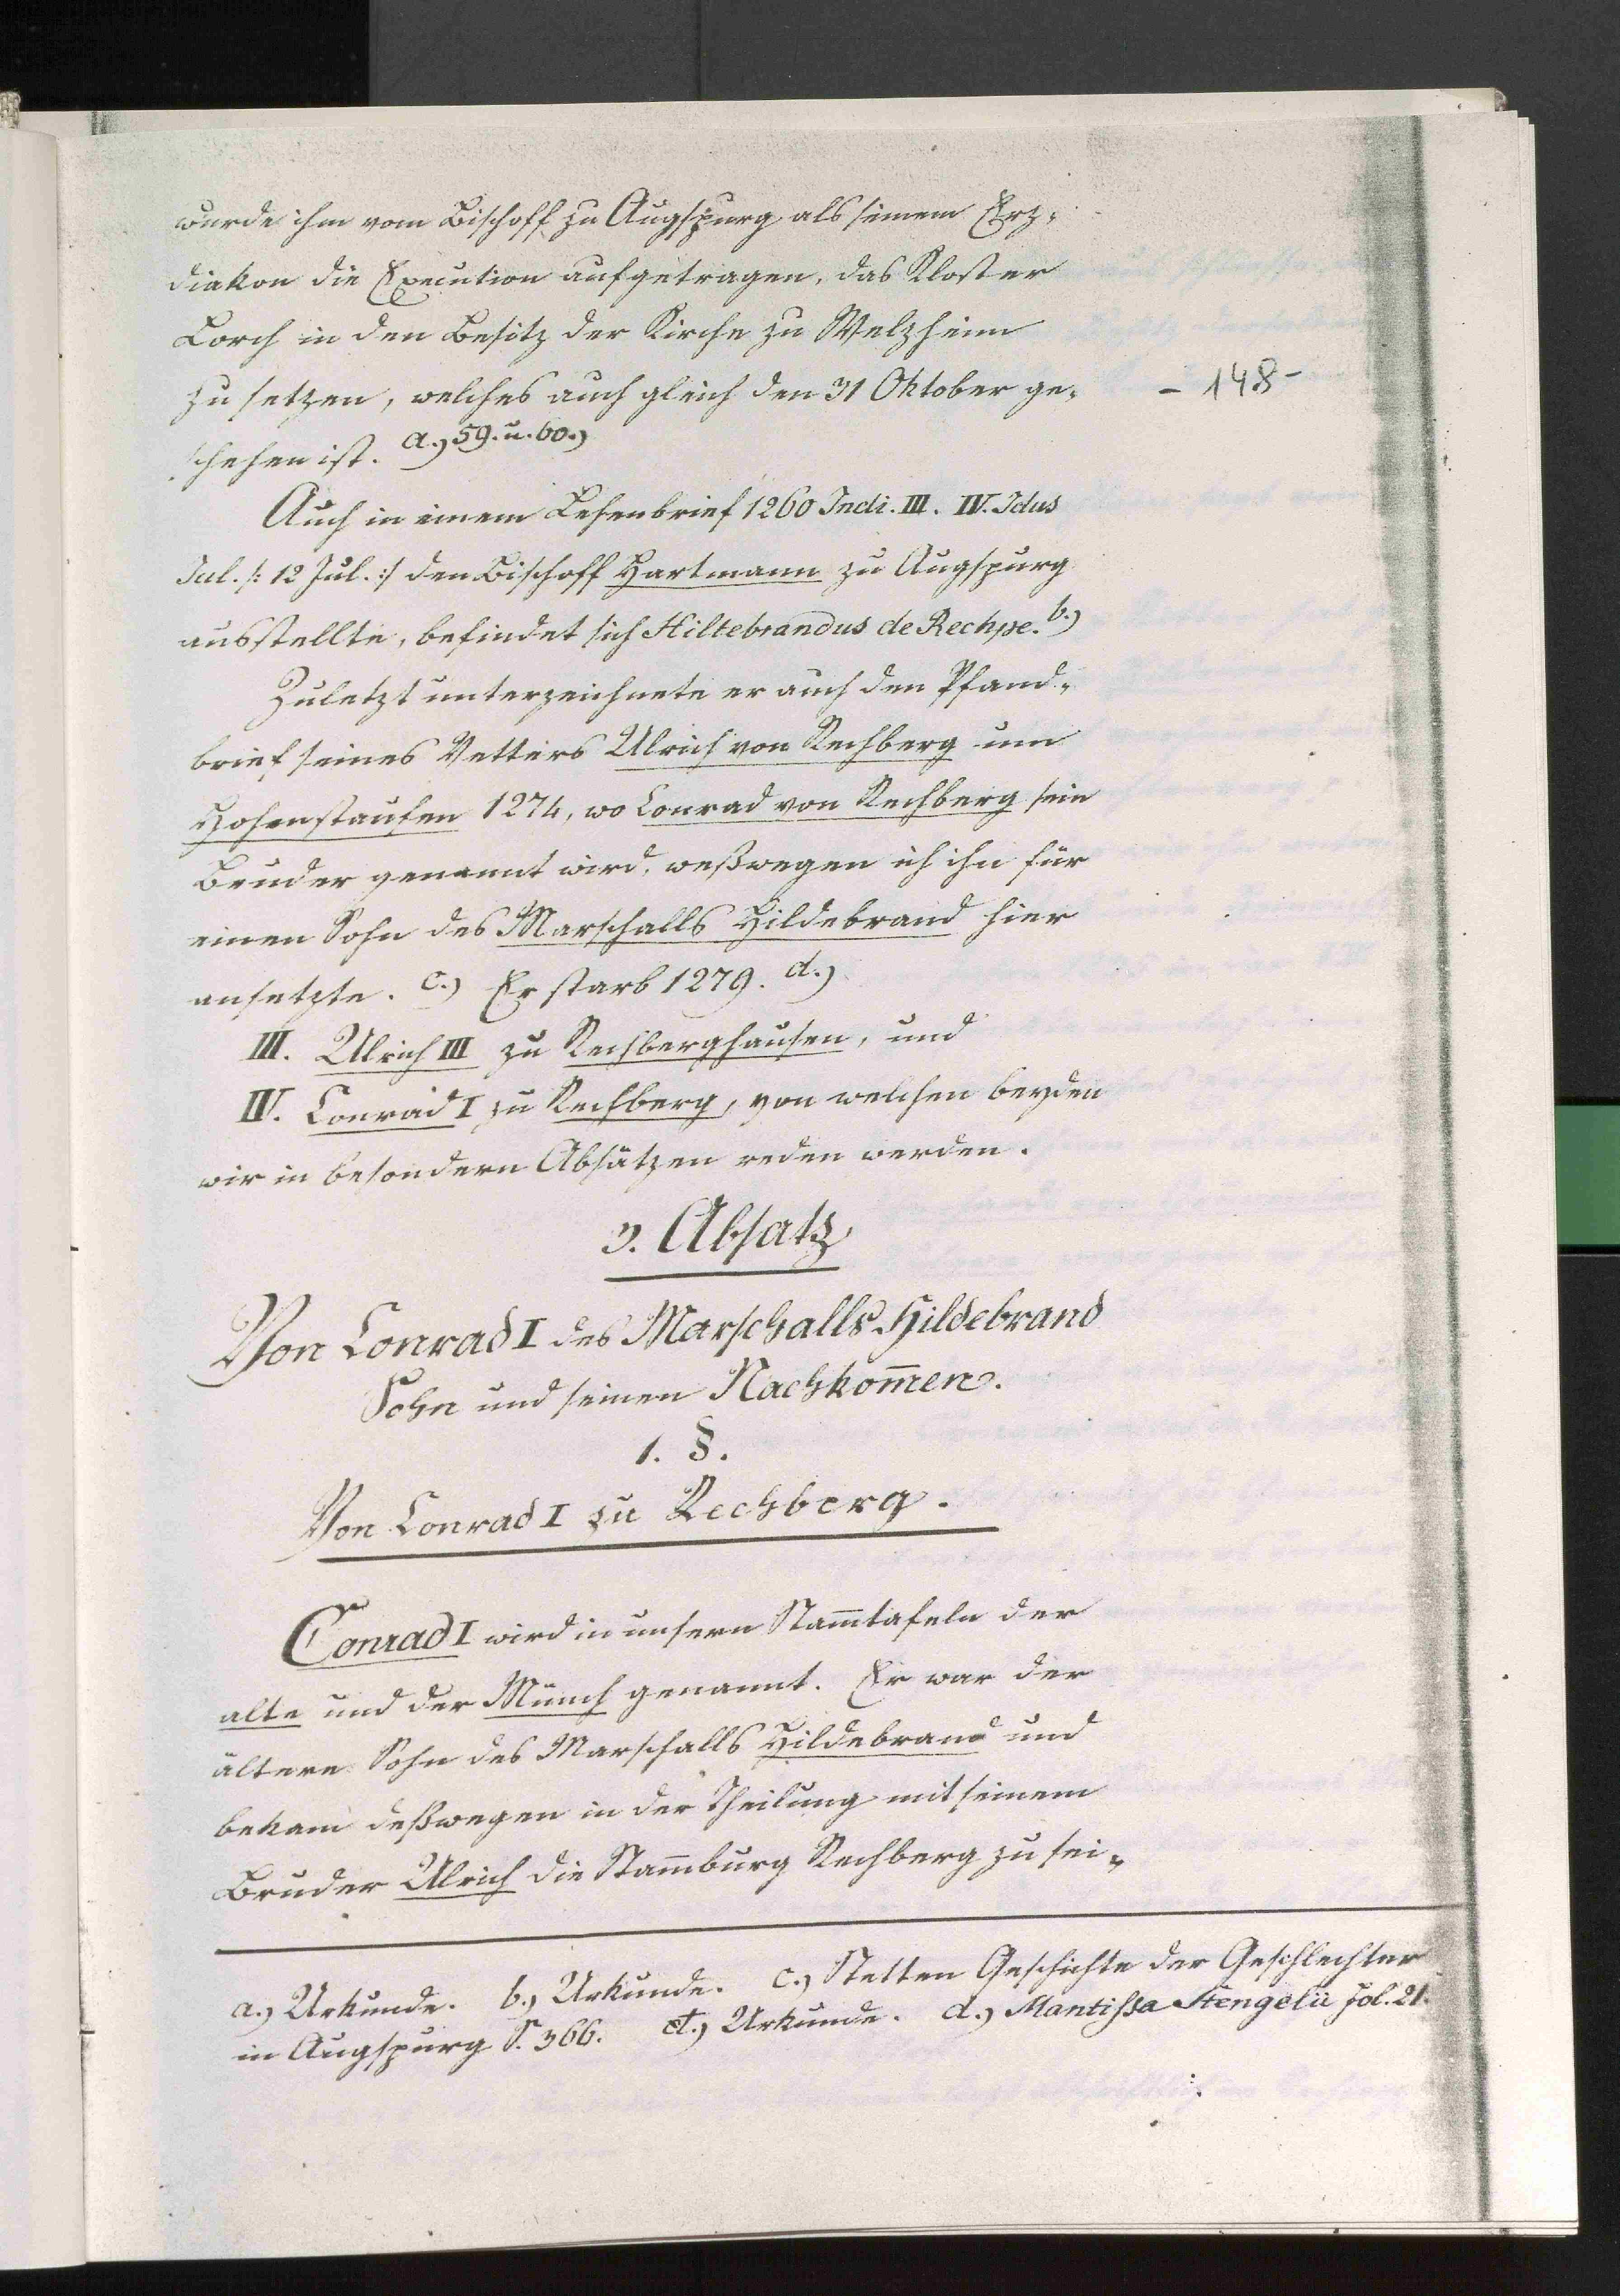 wurde ihm vom Bischoff zu Augspurg als seinem Erz-
diakon die Execution aufgetragen, das Kloster
Lorch in den Besitz der Kirche zu Welzheim
zu setzen, welches auch gleich den 31 Oktober ge-
- 148 -
schehen ist. a.) 59. u. 60.)
Auch in einem Lehenbrief 1260 Indi. III. IV. Idus
Jul. /: 12 Jul. :/ den Bischoff Hartmann zu Augspurg
ausstellte, befindet sich Hiltebrandus de Rechpe. b.)
Zuletzt unterzeichnete er auch den Pfand-
brief seines Vetters Ulrich von Rechberg um
Hohenstaufen 1274, wo Conrad von Rechberg sein
Bruder genannt wird, weßwegen ich ihn für
einen Sohn des Marschalls Hildebrand hier
ansetzte. c.) Er starb 1279. d.)
III. Ulrich III zu Rechberghausen, und
IV. Conrad I zu Rechberg, von welchen beyden
wir in besondern Absätzen reden werden.
3. Absatz
Von Conrad I des Marschalls Hildebrand
Sohn und seinen Nachkom̅en.
1. §.
Von Conrad I zu Rechberg.
Conrad I wird in unsern Stam̅tafeln der
alte und der Münch genannt. Er war der
ältere Sohn des Marschalls Hildebrand und
bekam deßwegen in der Theilung mit seinem
Bruder Ulrich die Stam̅burg Rechberg zu sei-
a.) Urkunde. b.) Urkunde. c.) Stetten Geschichte der Geschlechter
in Augspurg S. 366. Urkunde. d.) Mantissa Stengelii fol. 21.